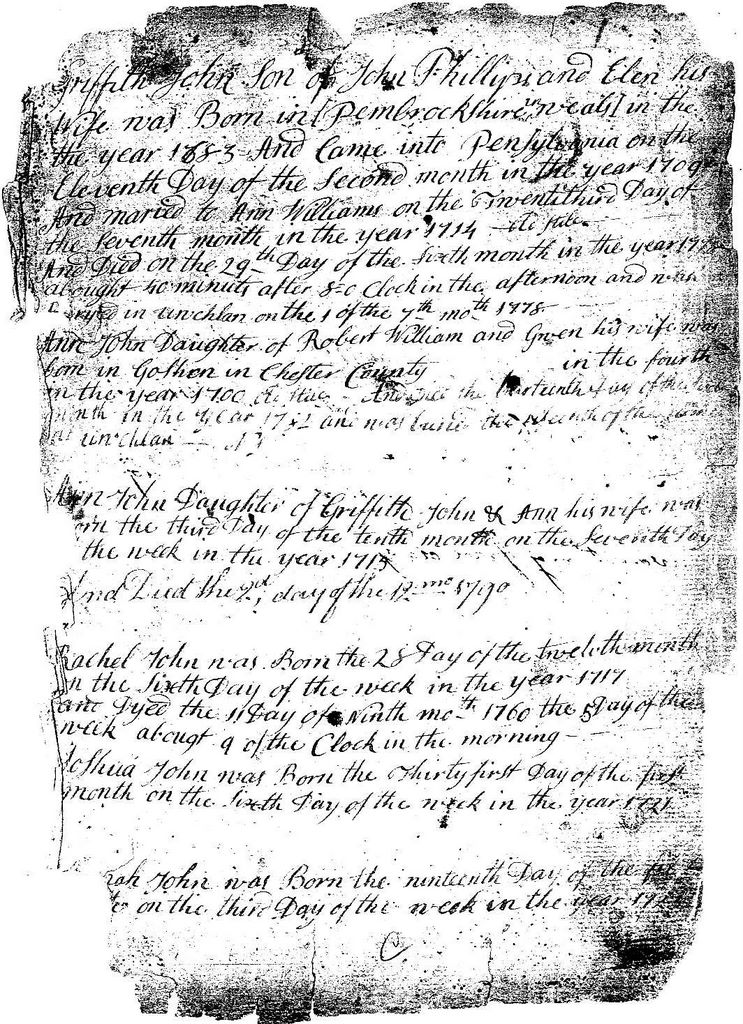 Griffith John Son of John Phillips and Elen his
Wife was Born in [Pembrockshire in weals] in the
the year 1683 And Came into Pensylvania on the
Eleventh Day of the Second month in the year 1709
And married to Ann Williams on the Twentithird Day of
the Seventh month in the year 1714
And Died on the 29th Day of the Sixth month in the year
abought 40 minuts after 8-o Clock in the afternoon and was
in uwchlan on the 1 of the 7th moth 1778
Ann John Daughter of Robert William and Gwen his wife was
born in Goshen in Chester County in the fourth
in the year 1700 And the of the
month in the year and was buried the of the
at uwchlan
Ann John Daughter of Griffith John & Ann his wife was
orn the third Day of the tenth month on the Seventh Day
the week in the year
And Died the 2d, day of the 12 mo 1790
Rachel John was Born the 28 Day of the twelvth month
on the Sixth Day of the week in the year 1717
and Dyed the 11 Day of Ninth moth 1760 the 5 Day of the
week abougt 9 of the Clock in the morning
Joshua John was Born the Thirty first Day of the first
month on the Sixth Day of the week in the year 1721
ah John was Born the ninteenth Day of the
on the third Day of the week in the year